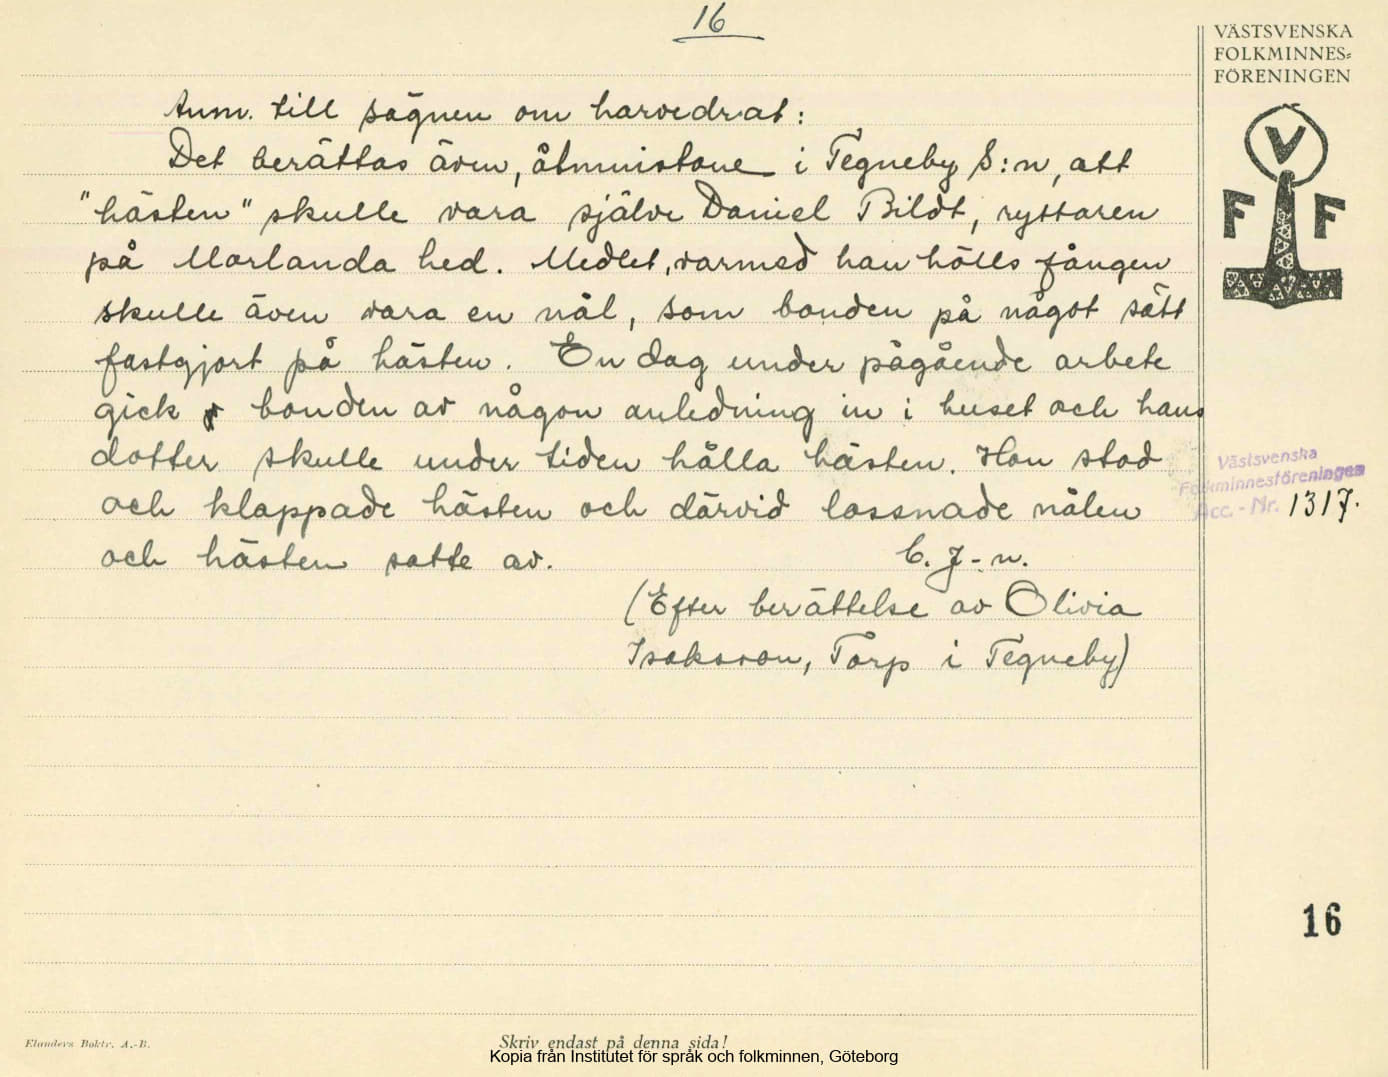 16
VÄSTSVENSKA
FOLKMINNES=
FÖRENINGEN
V
F F
Anm. till sägnen om harvedrat:
Det berättas även, åtminstone i Tegneby S:n, att
"hästen" skulle vara själve Daniel Bildt, ryttaren
på Morlanda hed. Medlet, varmed han hölls fången
skulle även vara en nål, som bonden på något sätt
fastgjort på hästen. En dag under pågående arbete
gick bonden av någon anledning in i huset och hans
dotter skulle under tiden hålla hästen. Hon stod
och klappade hästen och därvid lossnade nålen
och hästen satte av. C. J-n.
(Efter berättelse av Olivia
Isaksson, Torp i Tegneby)
Västsvenska
Folkminnesföreningen
Acc. - Nr. 1317.
16
Elanders Boktr. A.-B.
Skriv endast på denna sida!
Kopia från Institutet för språk och folkminnen, Göteborg